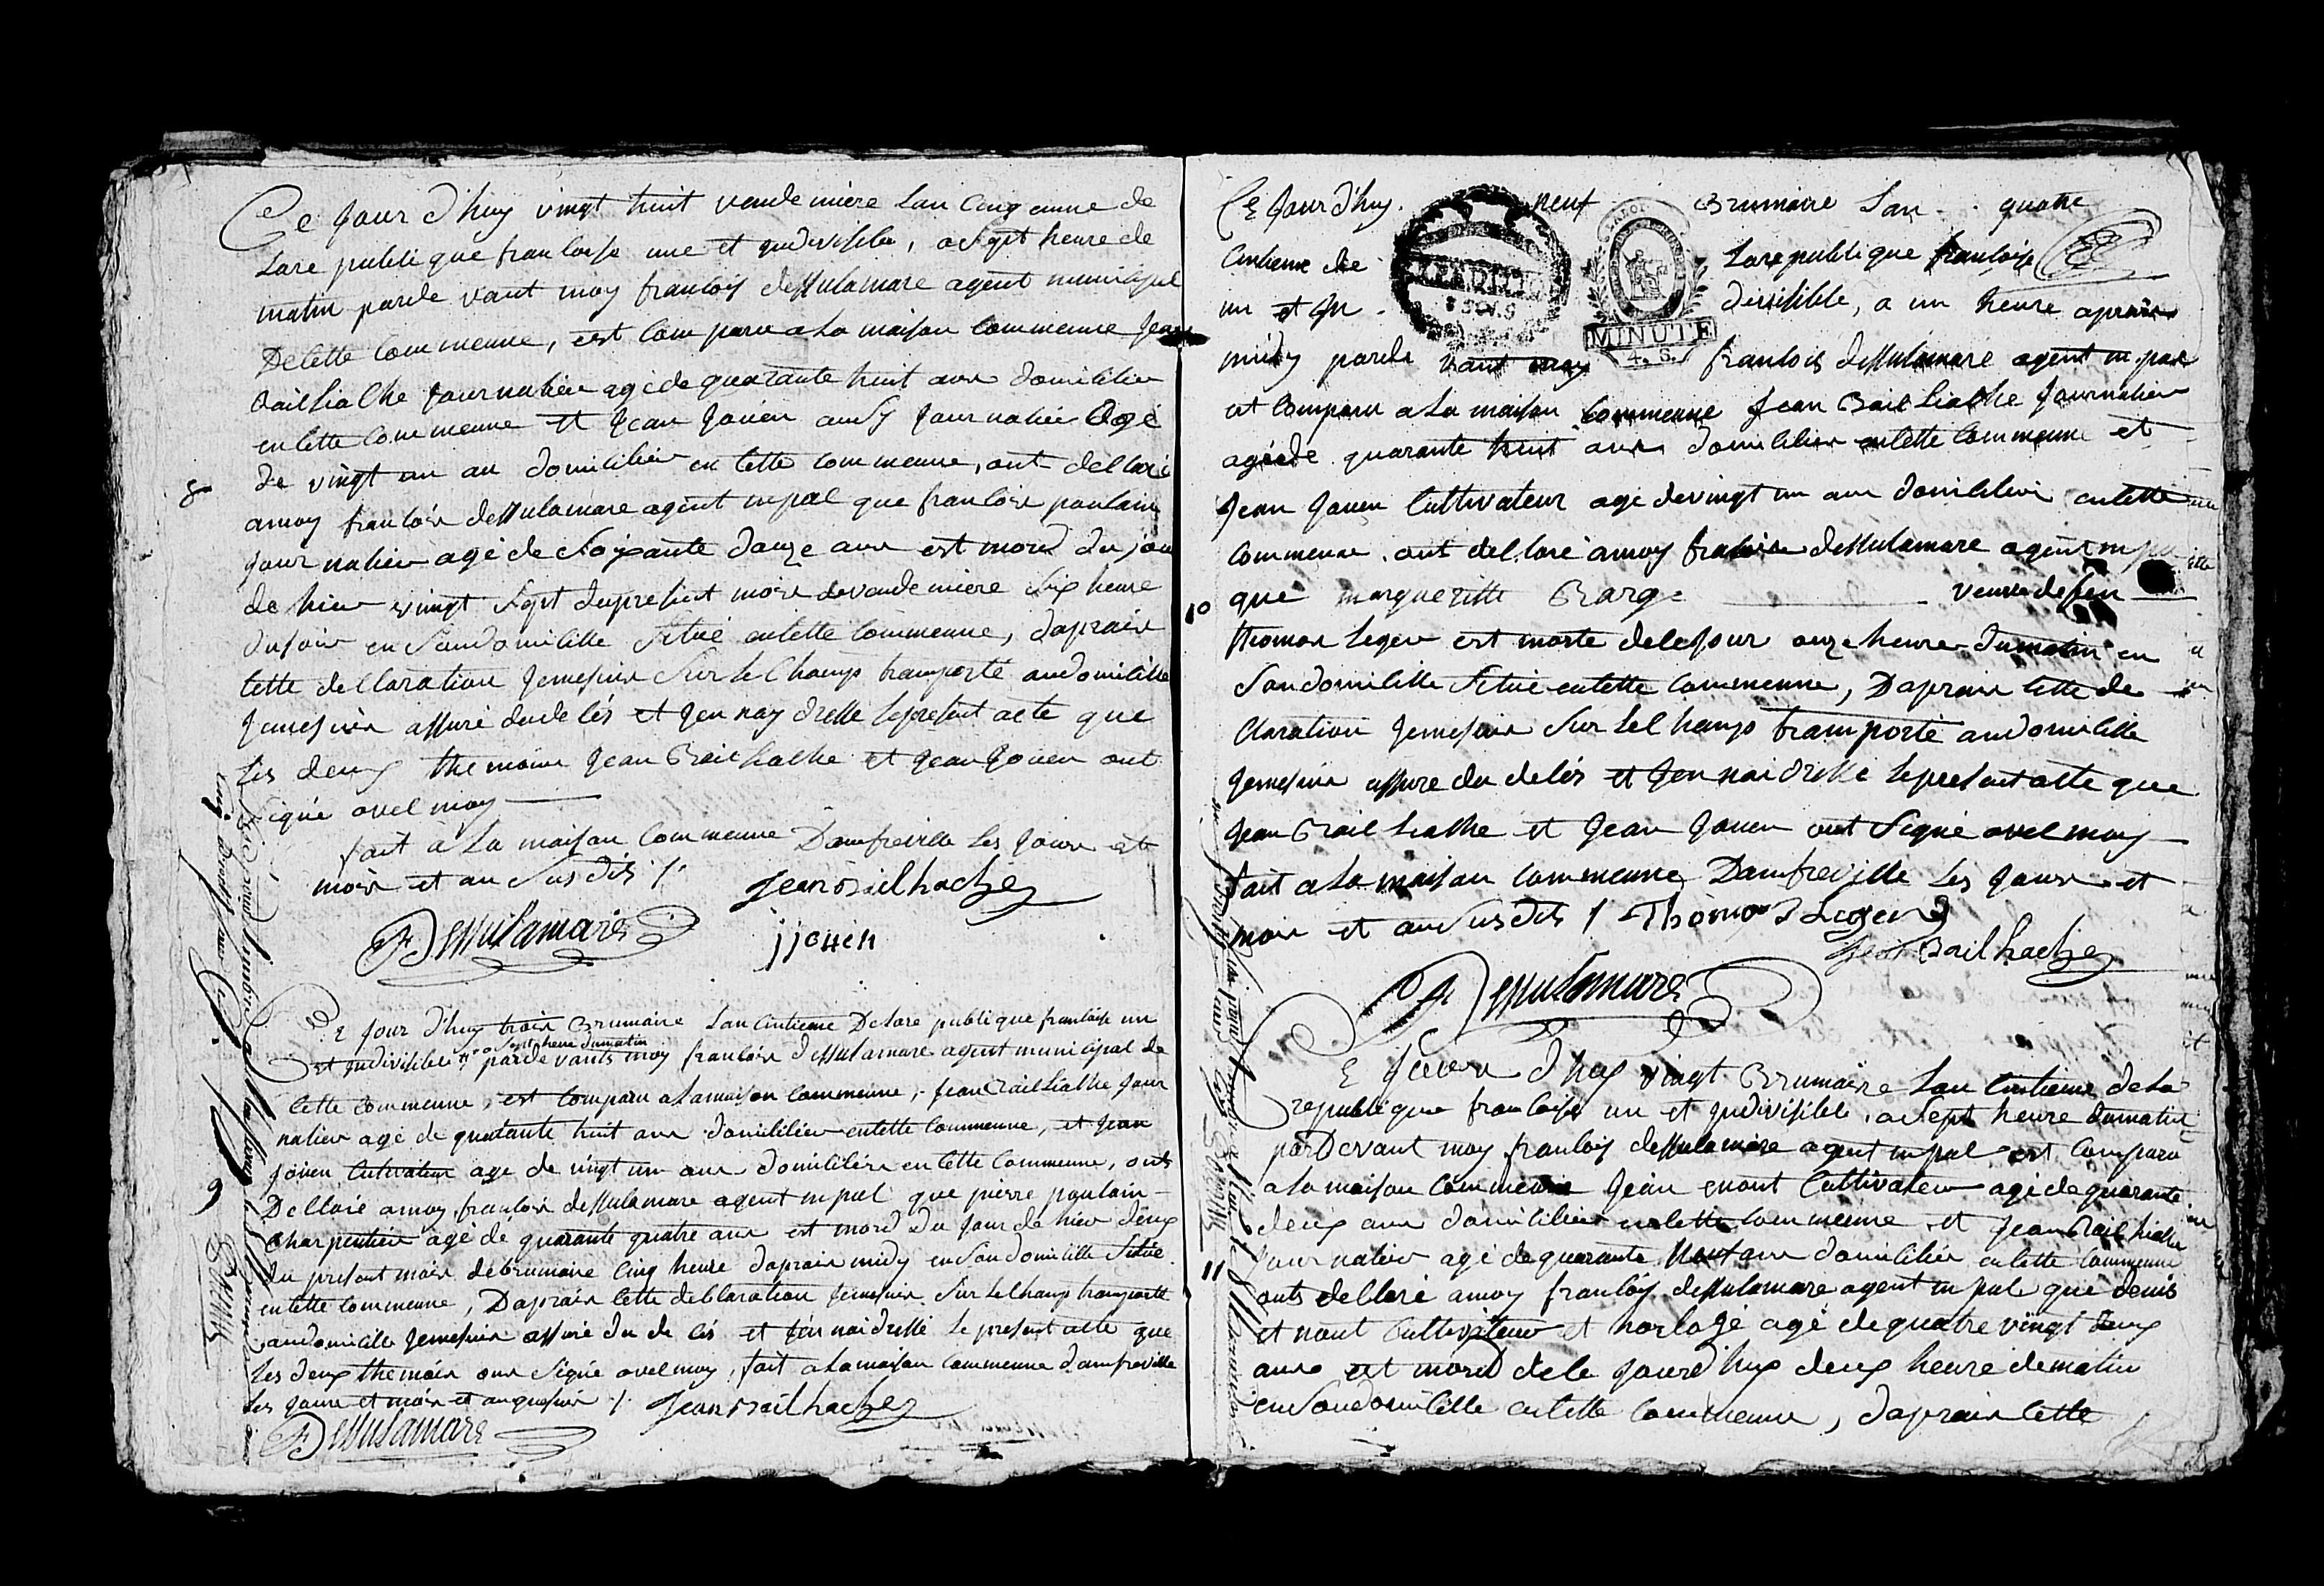 Ce jour d'huy vingt huit vende miere Lan Cinq eume de
Lare publi que francoise une et jndivisible, a sept heure de
matin parde vant moy francois dessulamare agent municipal
De Cette Commeune, est Comparu a La maison Commeune Jean
Bailhache Journalier agé de quarante huit ans domicilier
en Cette Commeune et Jean Jouen aussy Journalier agé
de vingt un an domicilier en Cette Commeune, ont declaré
8
amoy francois dessulamare agent mpal que francois poulain
Journalier agé de Soixante douze ans est mord du jour
de hier vingt sept du present mois de vendemiere six heure
du soir en Son domicille Sitüé en Cette Commeune, daprais
Cette declaration Jemesuis Sur le Champs transporté audomicille
Jemesuis assuré dudecés et Jen nay dressé Lepresent acte que
Les deux themoins Jean Bailhache et Jean Jouen ont
Signé avec moy
fait a La maison Commeune Damfreville Les Jours et
mois et an Susdits /.
Jean Bailhache
F Dessulamare
jjouen
Ce Jour d'huy trois Brumaire Lan Cintieme De Lare publique francoise un
et jndivisible a sept heure dumatin parde vants moy francois dessulamare agent municipal de
Cette Commeune, est Comparu a Lamaison Commeune, Jean Bailhache Jour
nalier agé de quatante huit ans domicilier en Cette Commeune, et Jean
Jouen Cultivateur age de vingt un ans domicilier en Cette Commeune, onts
9
Declaré amoy francois dessulamare agent mpal que pierre poulain
Charpentier agé de quarante quatre ans est mord du Jour de hier deux
du present mois de brumaire Cinq heure daprais midy en Son domicille Sitüé
en Cette Commeune, Daprais Cette declaration Jemesuis Sur Le Champ transporté
audomicille Jemesuis assuré du de cés et Jen nai dressé Le present acte que
Les deux themoin ons Signé avec moy, fait a Lamaison Commeune damfreville
Les Jours et mois et anquesuis /. Jean Bailhache
F Dessulamare
Ce Jour d'huy neuf Brumaire Lan quatre
Cintieme de Larepublique francoise
un et jn divisible, a un heure aprais
midy parde vant moy francois dessulamare agent m. pal
est Comparu a La maison Commeune Jean Bailhache Journalier
agé de quarante huit ans domicilier en Cette Commeune et
Jean Jouen Cultivateur agé de vingt un ans domicilier en Cette
Commeune, ont declaré amoy francois dessulamare agent mpal
10
que margueritte Barge veuve de feu
thomas Leger est morte de Ce Jour onze heure dumatin en
Son domicille Sitüé en Cette Commeune, Daprais Cette de
Claration Jemesuis Sur Le Champs transporté audomicille
Jemesuis assure du decés et Jen nai dressé Le present acte que
Jean Bailhache et Jean Jouen ont Signé avec moy
fait a La maison Commeune Damfreville Les Jours et
mois et an Susdits / Thomas Leger
Jean Bailhache
F Dessulamare
Ce Jour d'huy vingt Brumaire Lan Cintieme de La
republique francoise un et jndivisible, a Sept heure dumatin
par Devant moy francois dessulamare agent mpal est Comparu
a La maison Commeune Jean enout Cultivateur age de quarante
deux ans domicilier en Cette Commeune et Jean Bailhache
Journalier agé de quarante huit ans domicilier en Cette Commeune
11
onts declaré amoy francois dessulamare agent mpal que denis
et nout Cultivateur et horlogé agé de quatre vingt deux
ans est mord de Ce Jourd'huy deux heure de matin
en Son domicille en Cette Commeune, daprais Cette
MINUTE
4. S.